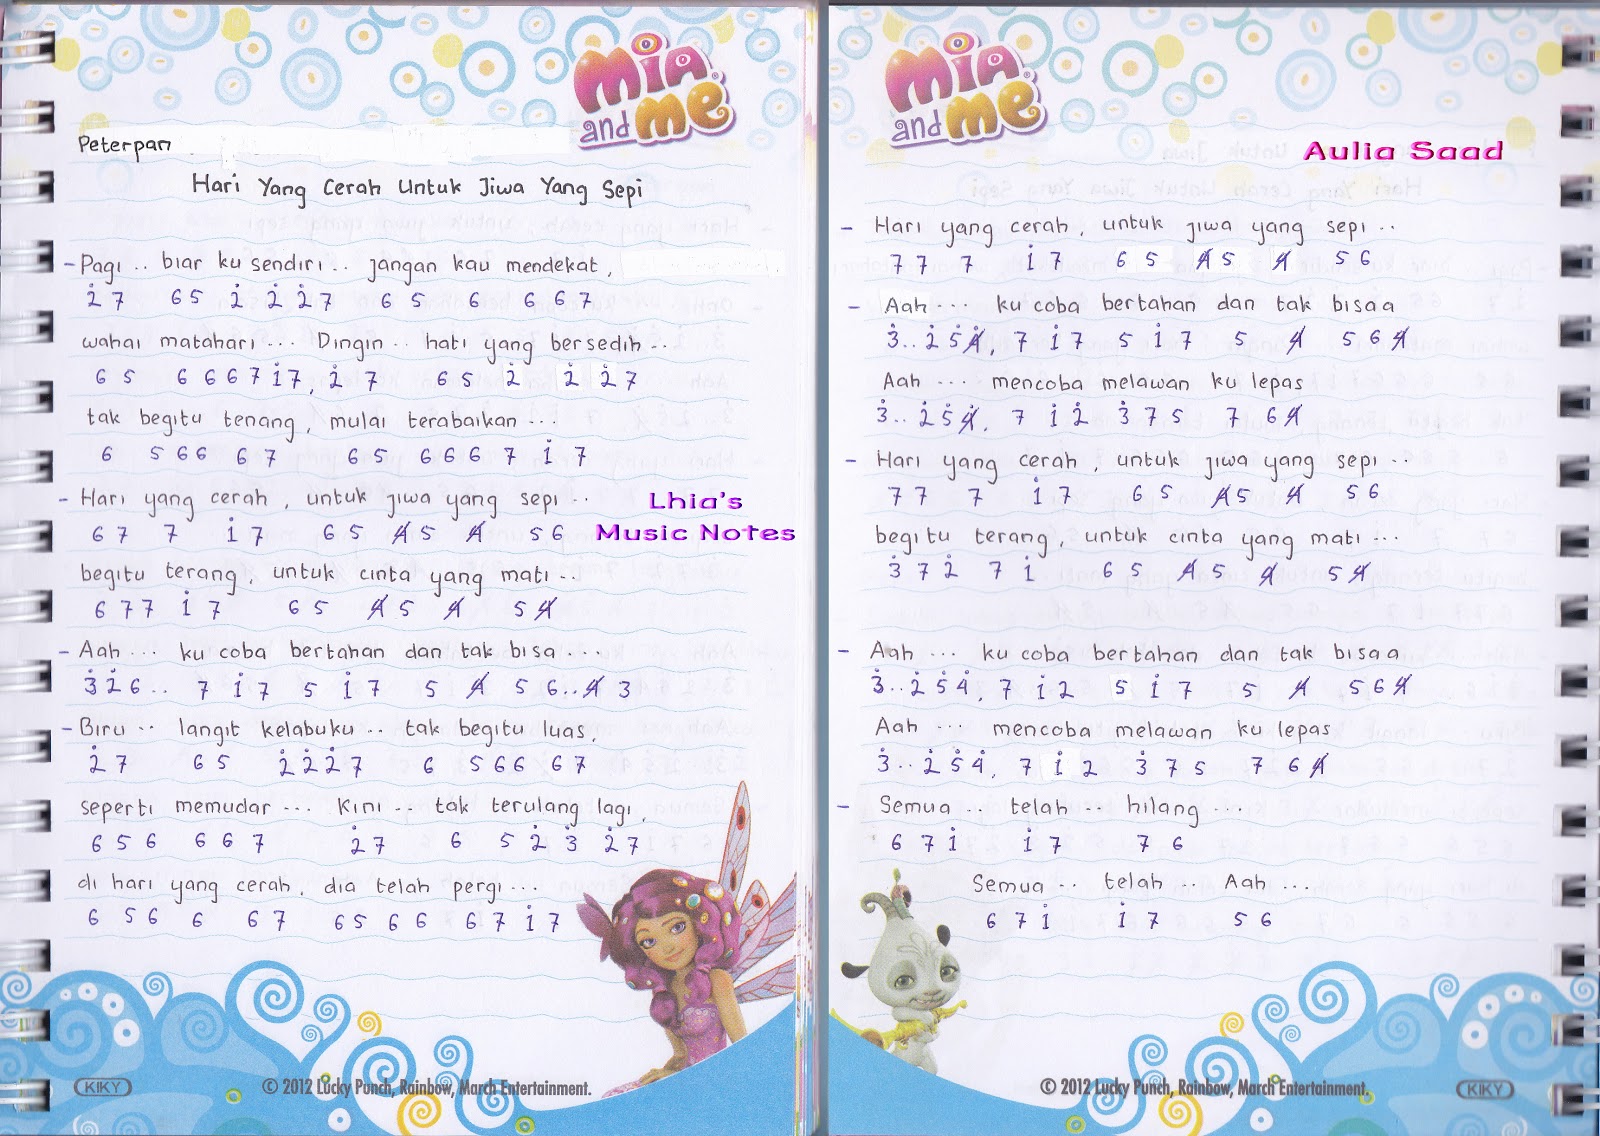 mia and me
Peterpan
Hari Yang Cerah Untuk Jiwa Yang Sepi
- Pagi .. biar ku sendiri .. jangan kau mendekat,
2̇ 7 6 5 2̇ 2̇ 2̇ 7 6 5 6 6 6 7
wahai matahari ... Dingin .. hati yang bersedih ..
6 5 6 6 6 7 1̇ 7, 2̇ 7 6 5 2̇ 2̇ 2̇ 7
tak begitu tenang, mulai terabaikan ...
6 5 6 6 6 7 6 5 6 6 6 7 1̇ 7
- Hari yang cerah, untuk jiwa yang sepi ..
6 7 7 1̇ 7 6 5 4̸ 5 4̸ 5 6
Lhia's
Music Notes
begitu terang, untuk cinta yang mati ..
6 7 7 1̇ 7 6 5 4̸ 5 4̸ 5 4̸
- Aah ... ku coba bertahan dan tak bisa ...
3̇ 2̇ 6 .. 7 1̇ 7 5 1̇ 7 5 4̸ 5 6 .. 4̸ 3
- Biru .. langit kelabuku .. tak begitu luas,
2̇ 7 6 5 2̇ 2̇ 2̇ 7 6 5 6 6 6 7
seperti memudar ... Kini .. tak terulang lagi,
6 5 6 6 6 7 2̇ 7 6 5 2̇ 3̇ 2̇ 7
di hari yang cerah, dia telah pergi ...
6 5 6 6 6 7 6 5 6 6 6 7 1̇ 7
KIKY
© 2012 Lucky Punch, Rainbow, March Entertainment.
mia and me
Aulia Saad
- Hari yang cerah, untuk jiwa yang sepi ..
7 7 7 1̇ 7 6 5 4̸ 5 4̸ 5 6
- Aah ... ku coba bertahan dan tak bisaa
3̇ .. 2̇ 5̇ 4̸̇, 7 1̇ 7 5 1̇ 7 5 4̸ 5 6 4̸
Aah .... mencoba melawan ku lepas
3̇ .. 2̇ 5̇ 4̸̇, 7 1̇ 2̇ 3̇ 7 5 7 6 4̸
- Hari yang cerah, untuk jiwa yang sepi ..
7 7 7 1̇ 7 6 5 4̸ 5 4̸ 5 6
begitu terang, untuk cinta yang mati ...
3̇ 7 2̇ 7 1̇ 6 5 4̸ 5 4̸ 5 4̸
- Aah ... ku coba bertahan dan tak bisaa
3̇ .. 2̇ 5̇ 4̇, 7 1̇ 2 5 1̇ 7 5 4̸ 5 6 4̸
Aah ... mencoba melawan ku lepas
3̇ .. 2̇ 5̇ 4̇, 7 1̇ 2 3̇ 7 5 7 6 4̸
- Semua .. telah .. hilang ...
6 7 1̇ 1̇ 7 7 6
Semua .. telah .. Aah ...
6 7 1̇ 1̇ 7 5 6
© 2012 Lucky Punch, Rainbow, March Entertainment.
KIKY